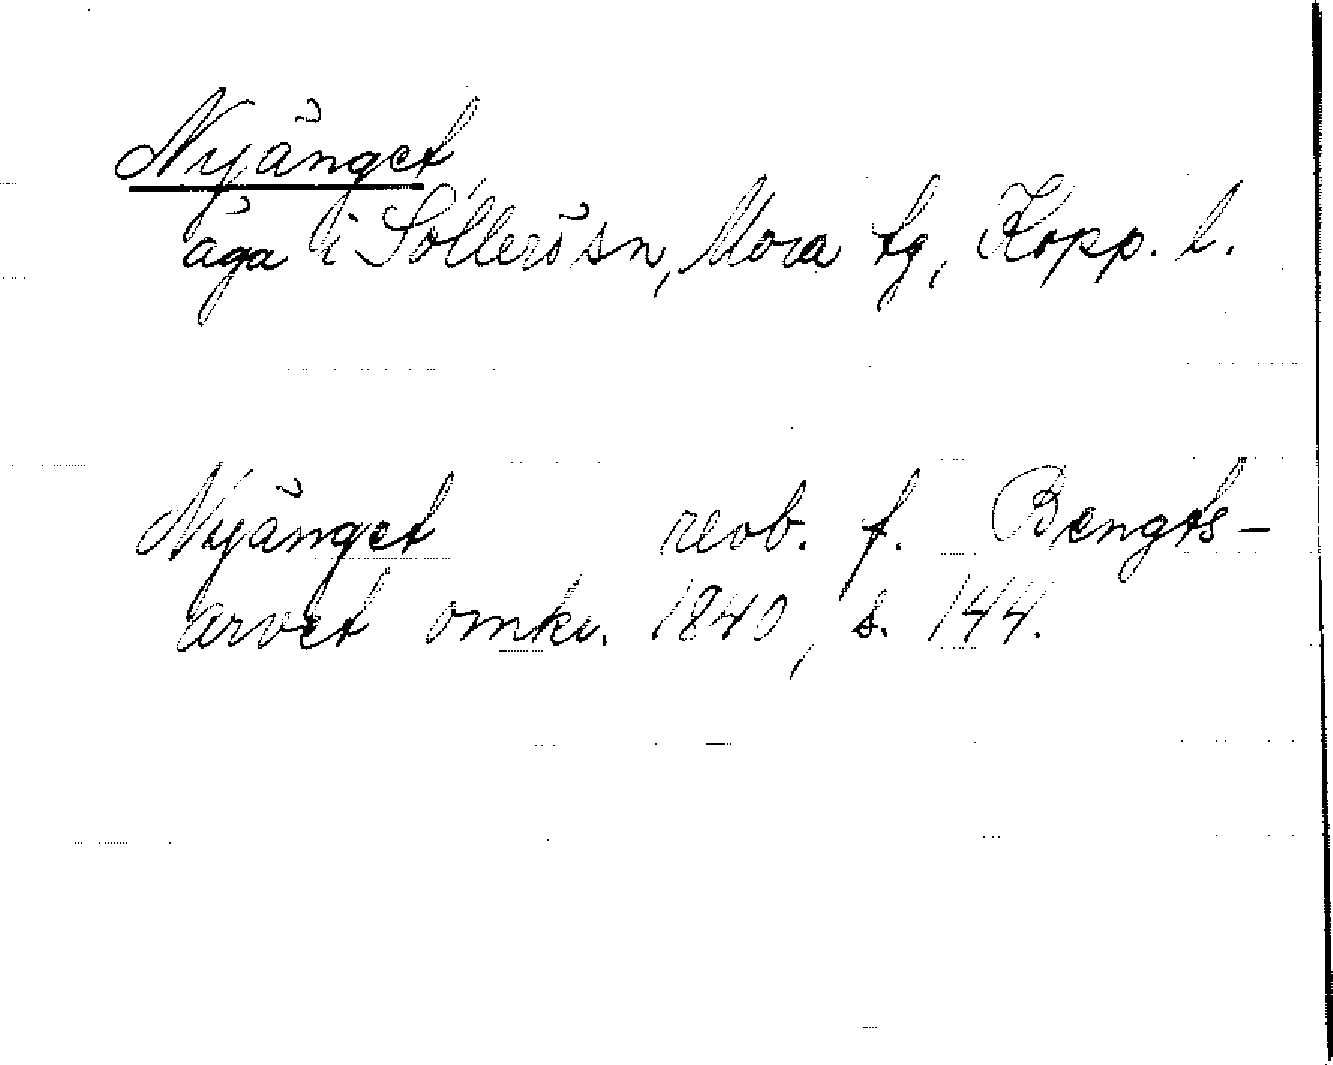 Nyänget
äga i Sollerö sn, Mora tg, Kopp. l.
Nyänget revb. f. Bengts-
arvet omkr. 1840, s. 144.